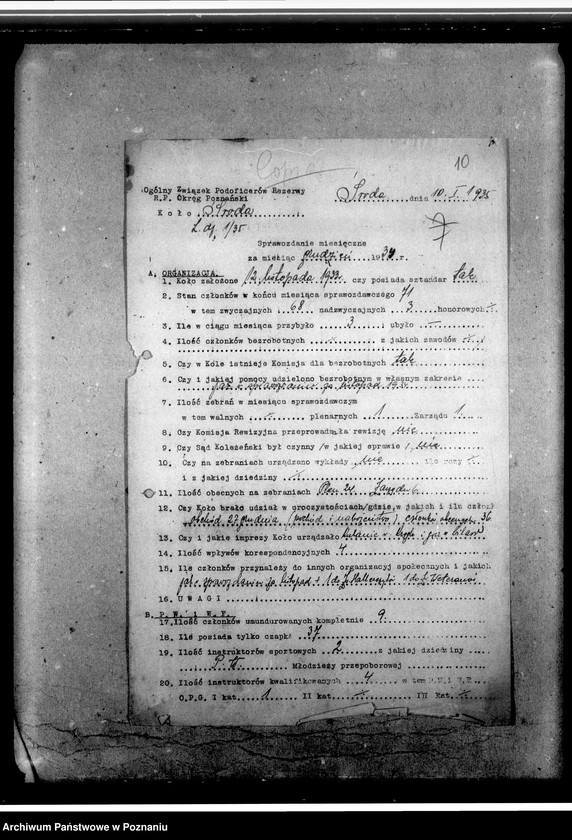 10
Ogólny Związek Podoficerów Rezerwy
R.P. Okręg Poznański
Środa dnia 10. I. 1935
Koło Środa
L.dz. 1/35
Sprawozdanie miesięczne
za miesiąc grudzień 1934 r.
A. ORGANIZACJA.
1. Koło założone 12 listopada 1922 czy posiada sztandar tak
2. Stan członków w końcu miesiąca sprawozdawczego 71
w tem zwyczajnych 68 nadzwyczajnych 3 honorowych
3. Ile w ciągu miesiąca przybyło 3 ubyło
4. Ilość członków bezrobotnych z jakich zawodów
5. Czy w Kole istnieje Komisja dla bezrobotnych tak
6. Czy i jakiej pomocy udzielono bezrobotnym w własnym zakresie
listopad
7. Ilość zebrań w miesiącu sprawozdawczym
w tem walnych plenarnych 1 Zarządu 1
8. Czy Komisja Rewizyjna przeprowadziła rewizję nie
9. Czy Sąd Koleżeński był czynny /w jakiej sprawie/ nie
10. Czy na zebraniach urządzano wykłady nie ile razy
i z jakiej dziedziny
11. Ilość obecnych na zebraniach Plen 24 Zarząd 6
12. Czy Koło brało udział w uroczystościach/gdzie w jakich i ilu człon
obchód 27 grudnia (pochód i nabożeństwo) 36
13. Czy i jakie imprezy Koło urządzało
14. Ilość wpływów korespondencyjnych 4
15. Ilu członków przynależy do innych organizacyj społecznych i jakich
listopad
16. UWAGI
B. P.W. i W.F.
17. Ilość członków umundurowanych kompletnie 9
18. Ile posiada tylko czapki 37
19. Ilość instruktorów sportowych 2 z jakiej dziedziny
P.W. Młodzieży przepoborowej
20. Ilość instruktorów kwalifikowanych 4 w tem P.W. i W.F.
O.P.G. I kat. 1 II kat. III Kat.
Archiwum Państwowe w Poznaniu